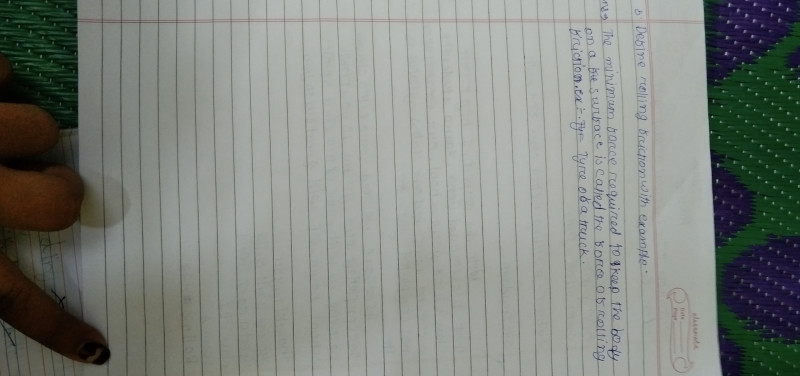 Define rolling friction with example.
Ans The minimum force required to keep the body
on a the surface is called the force of rolling
friction. ex:- Tyre of a truck.